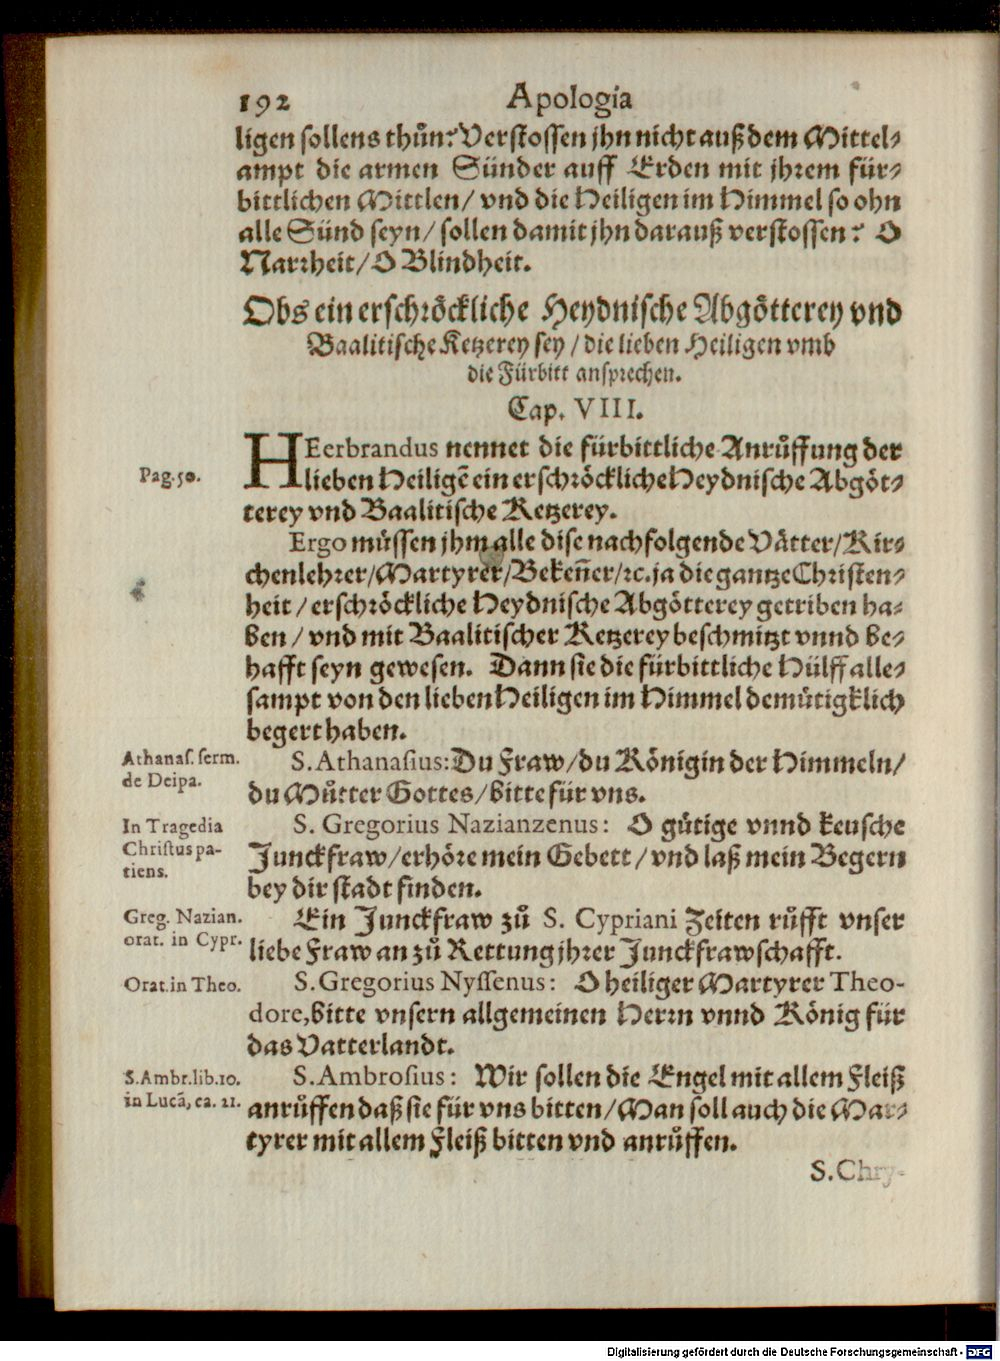 192 Apologia
ligen sollens thůn? Verstossen jhn nicht auß dem Mittel-
ampt die armen Sünder auff Erden mit jhrem für-
bittlichen Mittlen/ vnd die Heiligen im Himmel so ohn
alle Sünd seyn/ sollen damit jhn darauß verstossen? O
Narrheit/ O Blindheit.
Obs ein erschröckliche Heydnische Abgötterey vnd
Baalitische Ketzerey sey/ die lieben Heiligen vmb
die Fürbitt ansprechen.
Cap. VIII.
HEerbrandus nennet die fürbittliche Anrůffung der
Pag. 50.
lieben Heiligē ein erschröckliche Heydnische Abgöt-
terey vnd Baalitische Ketzerey.
Ergo müssen jhm alle dise nachfolgende Vätter/ Kir-
chenlehrer/ Martyrer/ Bekeñer/ ꝛc. ja die gantze Christen-
heit/ erschröckliche Heydnische Abgötterey getriben ha-
ben/ vnd mit Baalitischer Ketzerey beschmitzt vnnd be-
hafft seyn gewesen. Dann sie die fürbittliche Hülff alle-
sampt von den lieben Heiligen im Himmel demütigklich
begert haben.
Athanas. serm.
de Deipa.
S. Athanasius: Du Fraw/ du Königin der Himmeln/
du Můtter Gottes/ bitte für vns.
In Tragedia
Christus pa-
tiens.
S. Gregorius Nazianzenus: O gütige vnnd keusche
Junckfraw/ erhöre mein Gebett/ vnd laß mein Begern
bey dir stadt finden.
Greg. Nazian.
orat. in Cypr.
Ein Junckfraw zů S. Cypriani Zeiten růfft vnser
liebe Fraw an zů Rettung jhrer Junckfrawschafft.
Orat. in Theo.
S. Gregorius Nyssenus: O heiliger Martyrer Theo-
dore, bitte vnsern allgemeinen Herrn vnnd König für
das Vatterlandt.
S. Ambr. lib. 10.
in Lucā, ca. 21.
S. Ambrosius: Wir sollen die Engel mit allem Fleiß
anrůffen daß sie für vns bitten/ Man soll auch die Mar-
tyrer mit allem Fleiß bitten vnd anrůffen.
S. Chry-
Digitalisierung gefördert durch die Deutsche Forschungsgemeinschaft - DFG